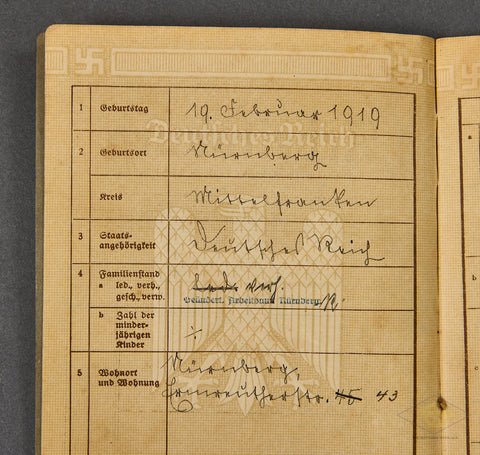 Deutsches Reich
1 Geburtstag 19. Februar 1919
2 Geburtsort Nürnberg
Kreis Mittelfranken
3 Staats-
angehörigkeit Deutsches Reich
4 Familienstand
a led., verh.,
gesch., verw. Led. verh.
Geändert. Arbeitsamt Nürnberg
b Zahl der
minder-
jährigen
Kinder ./.
5 Wohnort
und Wohnung Nürnberg,
Ermreutherstr. 45 43
a
b